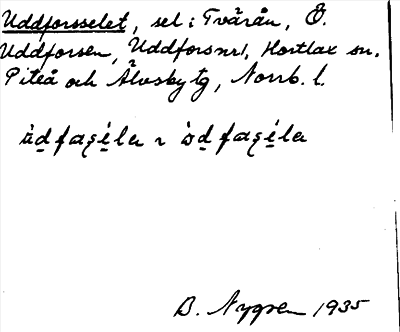 Uddforsselet, sel i Tvärån, Ö.
Uddforsen, Uddforsnr1, Hortlax sn.
Piteå och Älvsby tg, Norrb. l.
B. Nygren 1935